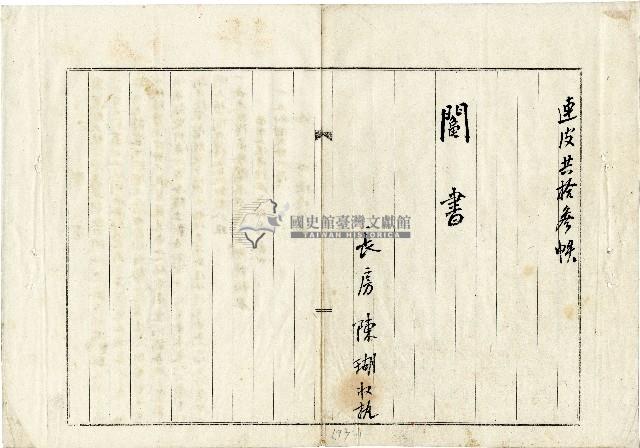 連皮共拾叁帙
鬮書
長房陳瑚收執
國史館臺灣文獻館
TAIWAN HISTORICA